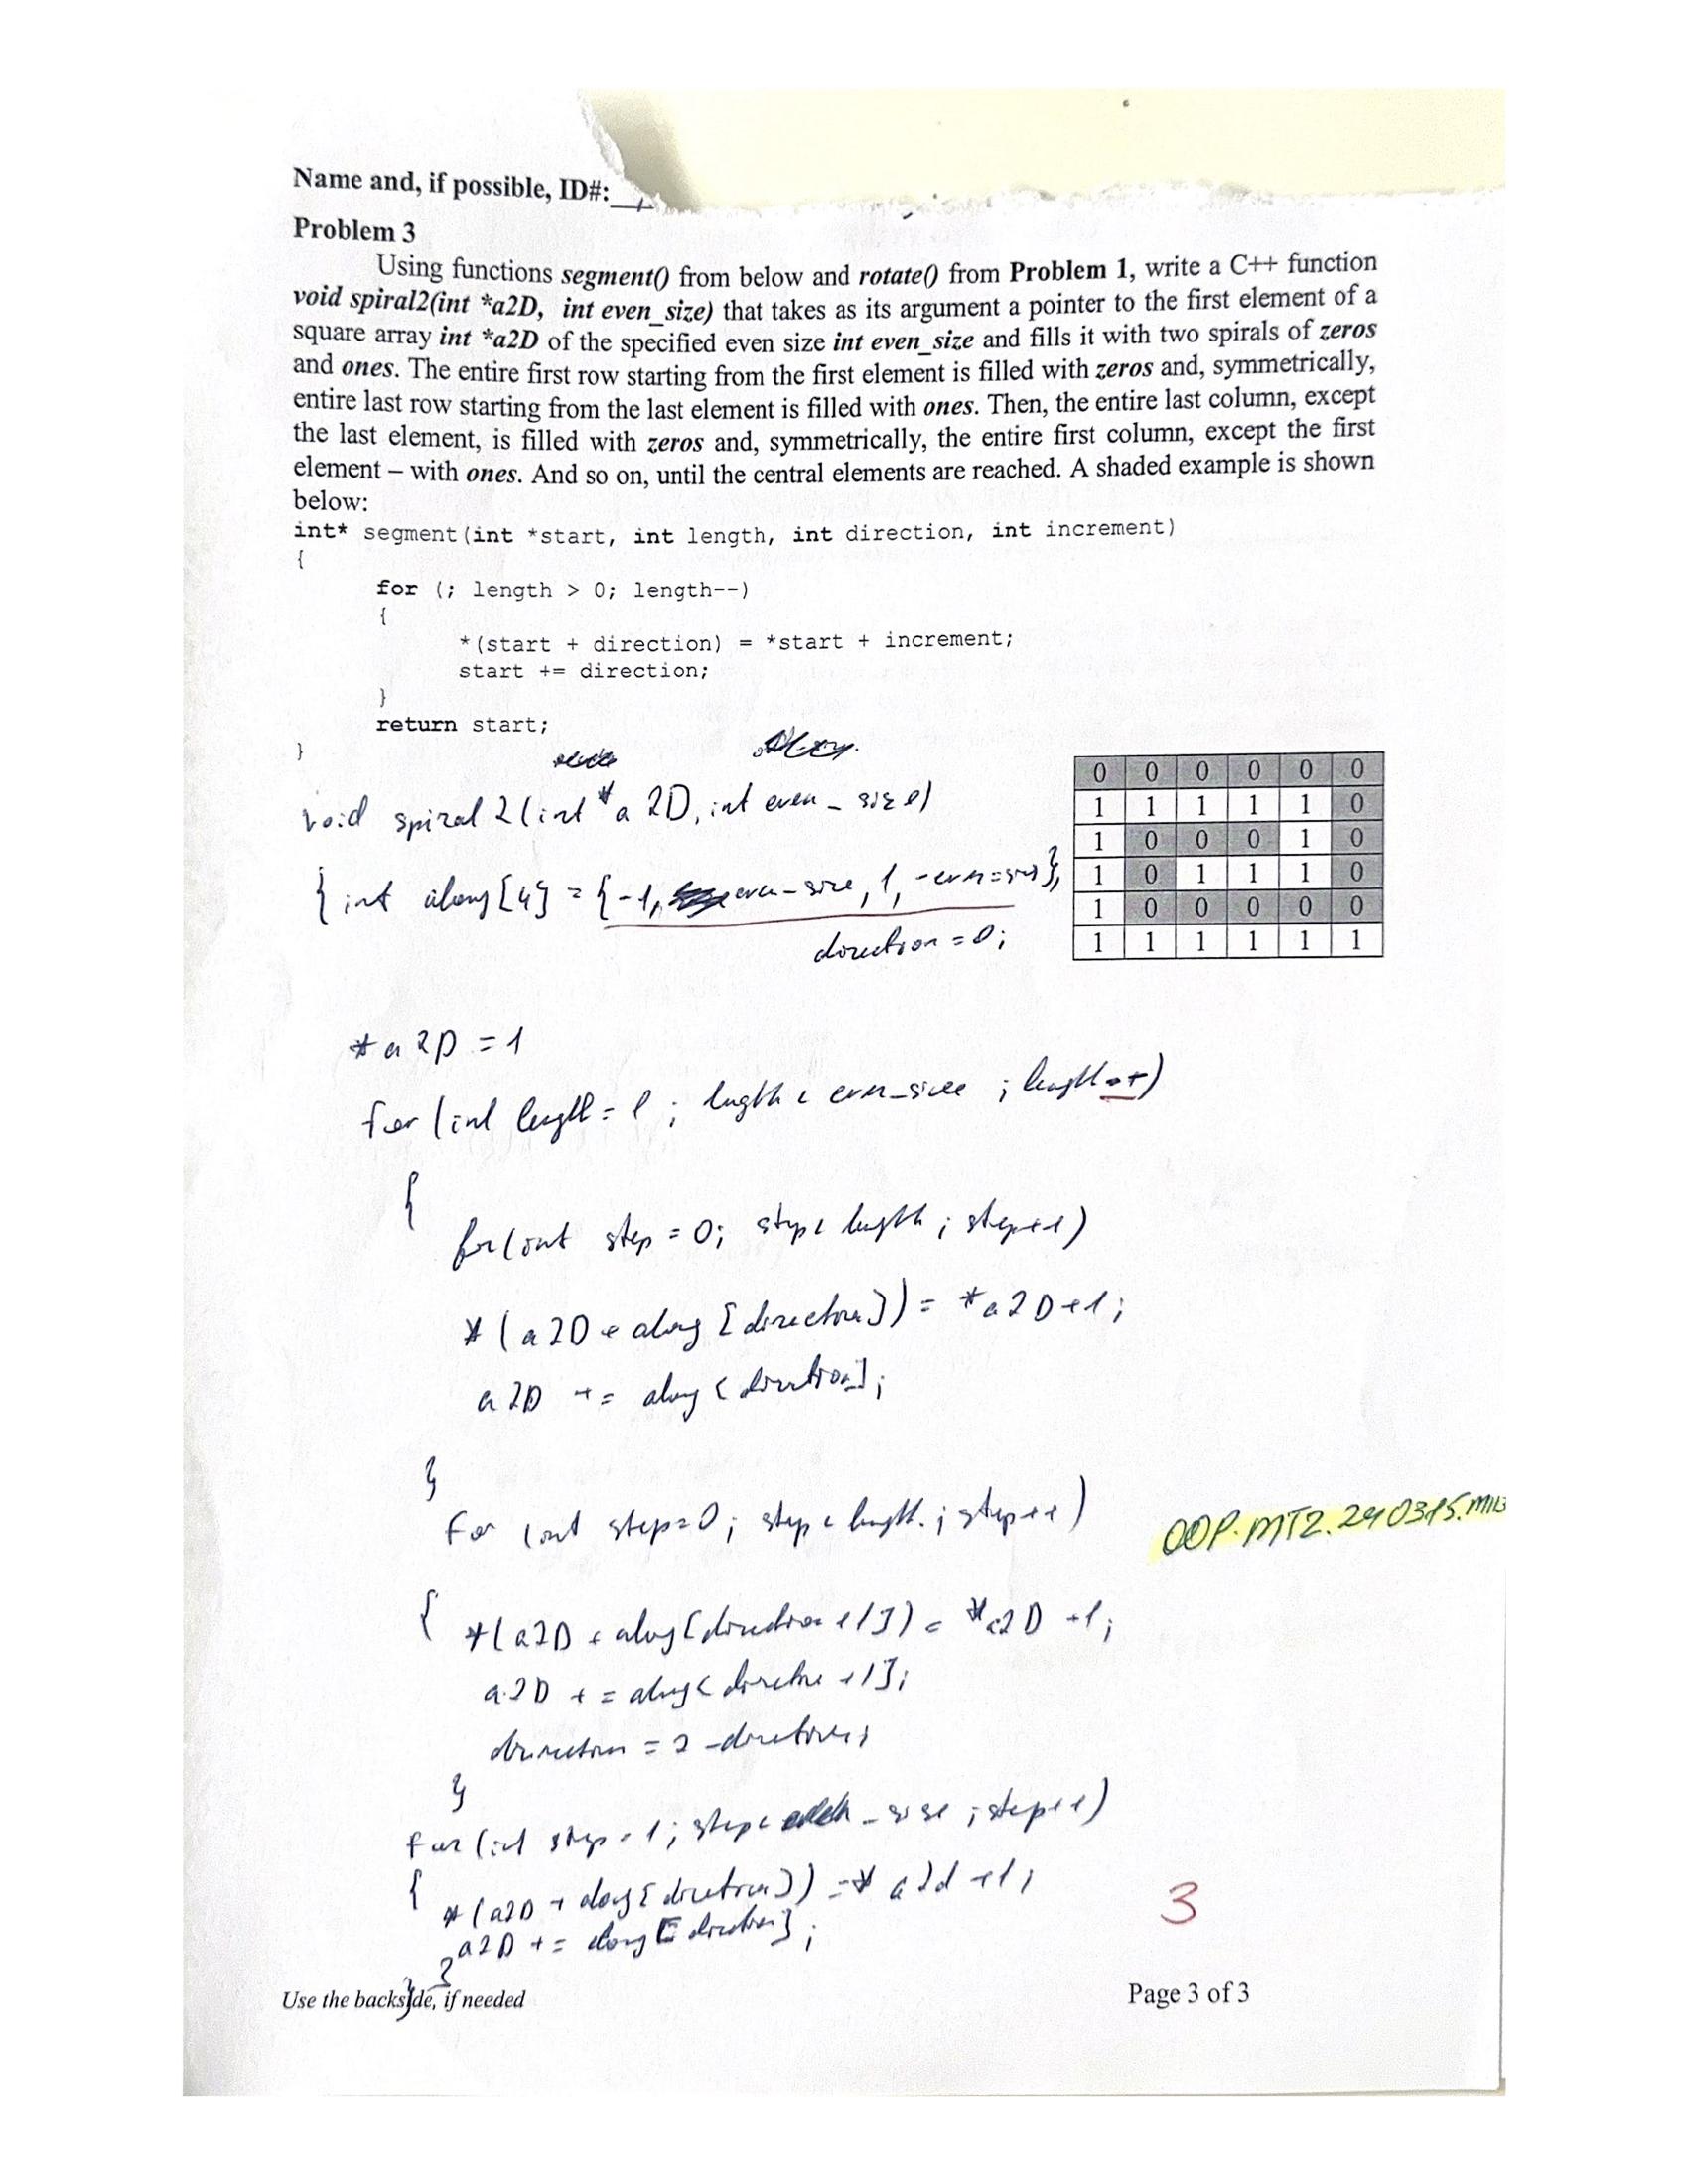 Name and, if possible, ID#:
Problem 3
Using functions segment() from below and rotate() from Problem 1, write a C++ function
void spiral2(int *a2D, int even_size) that takes as its argument a pointer to the first element of a
square array int *a2D of the specified even size int even_size and fills it with two spirals of zeros
and ones. The entire first row starting from the first element is filled with zeros and, symmetrically,
entire last row starting from the last element is filled with ones. Then, the entire last column, except
the last element, is filled with zeros and, symmetrically, the entire first column, except the first
element – with ones. And so on, until the central elements are reached. A shaded example is shown
below:
int* segment(int *start, int length, int direction, int increment)
{
for (; length > 0; length--)
{
*(start + direction) = *start + increment;
start += direction;
}
return start;
}
0 0 0 0 0 0
1 1 1 1 1 0
1 0 0 0 1 0
1 0 1 1 1 0
1 0 0 0 0 0
1 1 1 1 1 1
void spiral2(int *a2D, int even_size)
{ int along[4] = {-1, even-size, 1, -even-size},
direction = 0;
*a2D = 1
for (int length = 1; length < even_size ; length++)
{
for(int step = 0; step < length ; step++)
*(a2D + along[direction]) = *a2D+1;
a2D += along[direction];
}
for (int step=0; step < length ; step++)
{ *(a2D + along[direction+1]) = *a2D +1;
a2D += along[direction +1];
direction = 2 -direction;
}
for (int step = 1; step < _size ; step++)
{ *(a2D + along[direction]) = * a2d +1;
a2D += along[direction];
}
}
OOP.MT2.240315.
3
Use the backside, if needed
Page 3 of 3